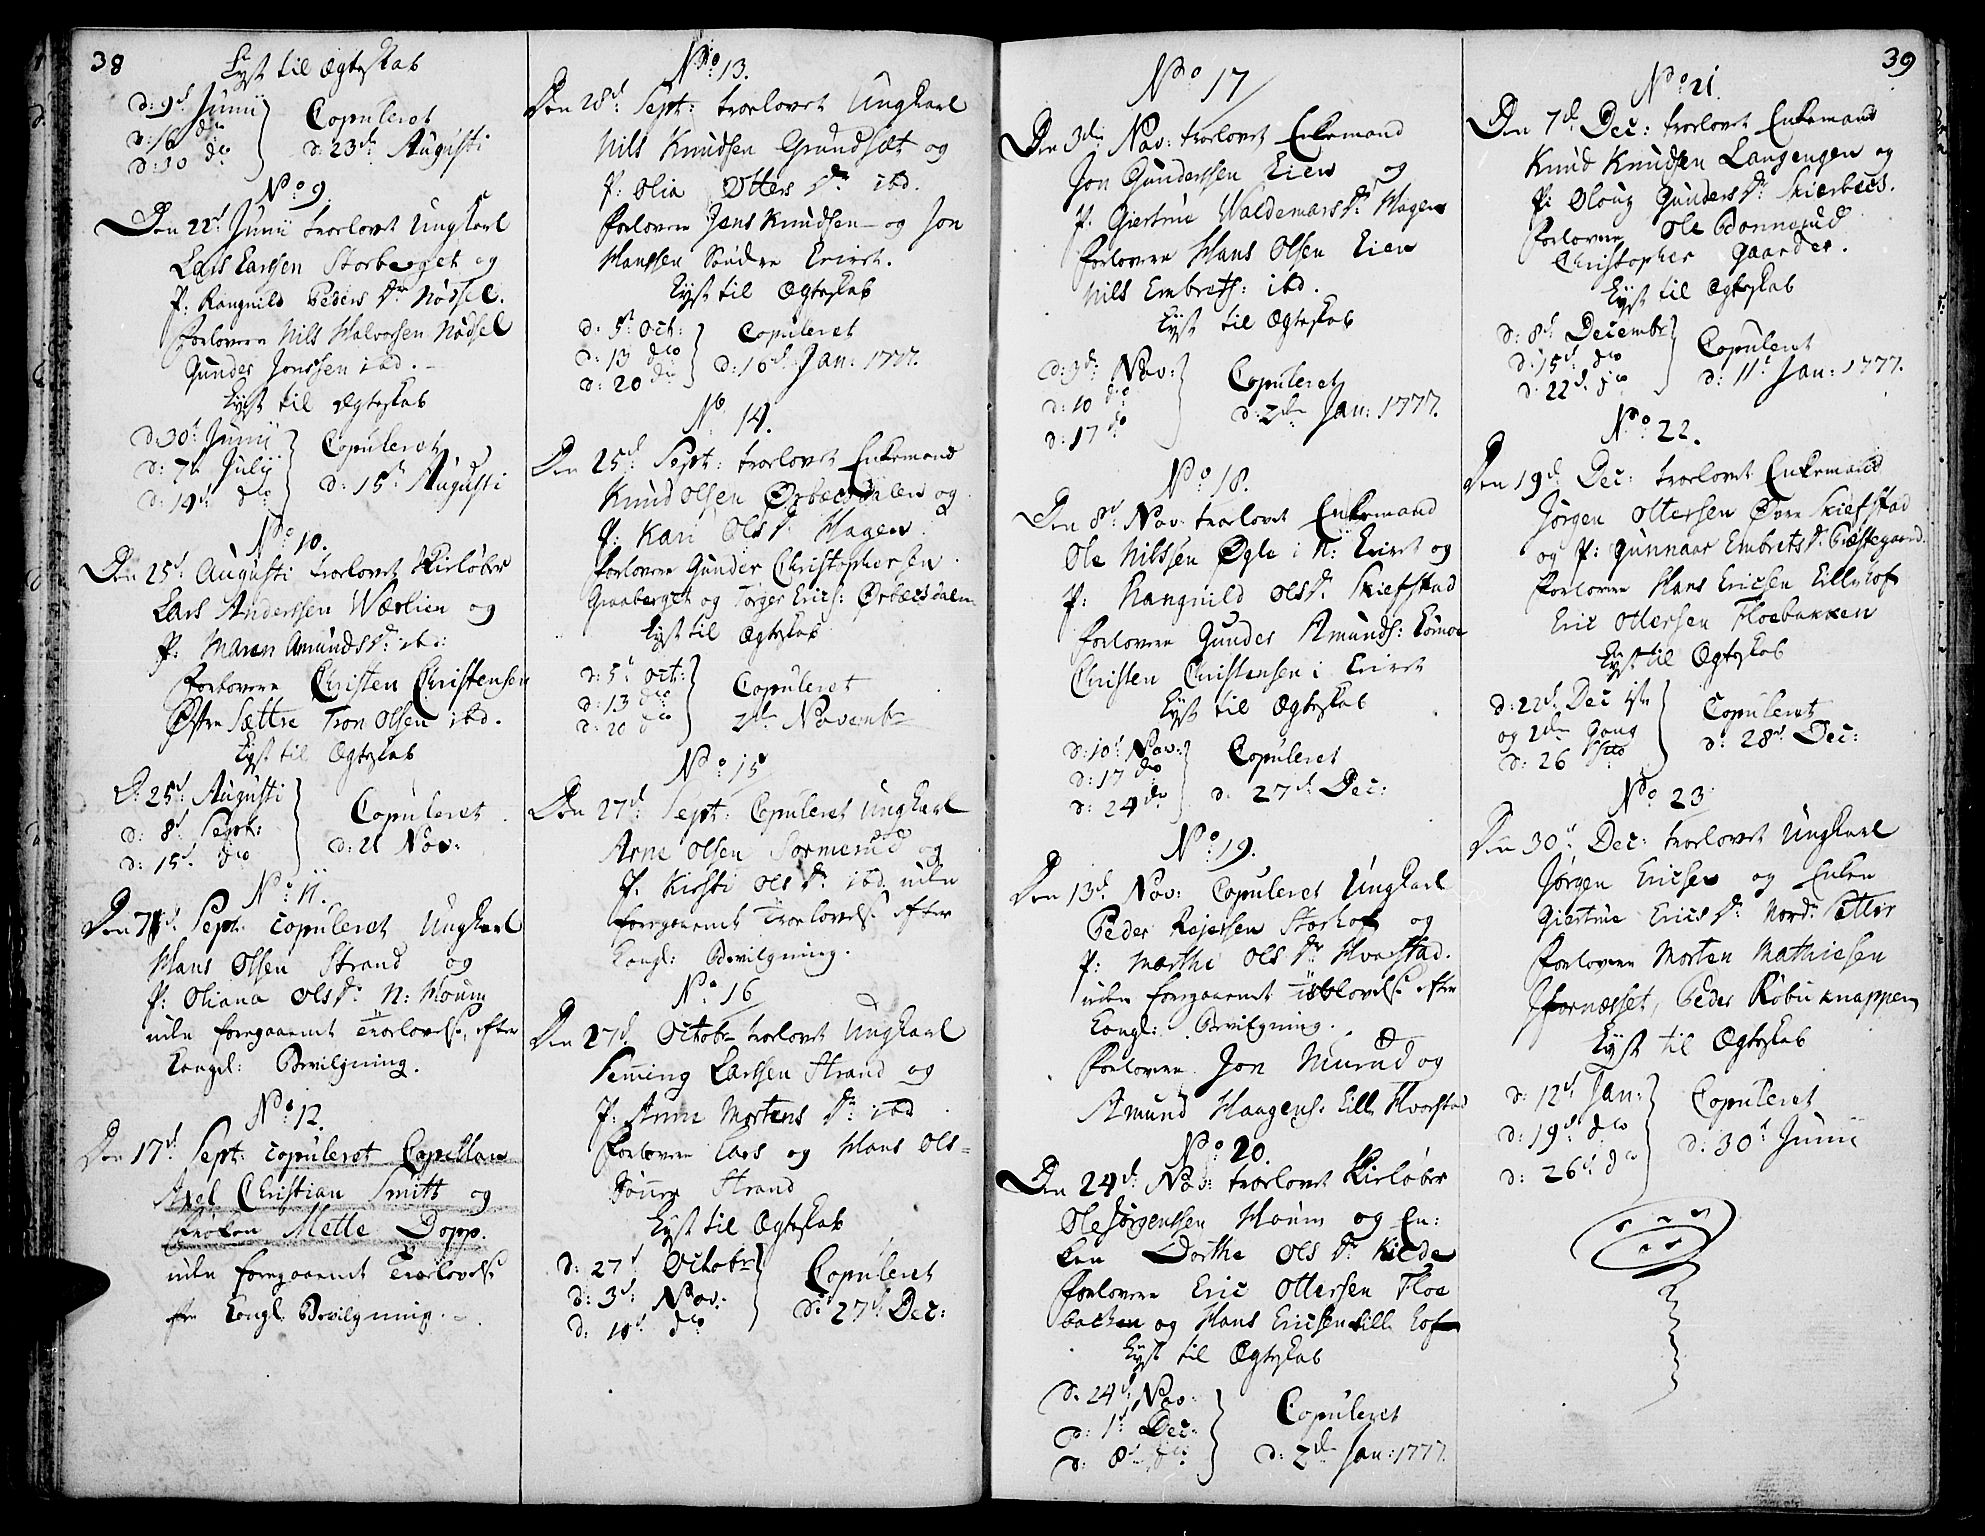 38
Lyst til Ægteskab
d: 9d Junii
d: 16 dco
d: 30 dco
Copuleret
d: 23d Augusti
No 9.
Den 22d Junii trolovet Ungkarl
Lars Larssen Storberget og
P: Rangnild Peders Dr Nødsel.
Forlovere Nils Halvorsen Nødsel
Gunder Jonssen ibd.
Lyst til Ægteskab
d: 30t Junii
d: 7d Julii
d: 14d dco
Copuleret
d: 15d Augusti
No 10.
Den 25d Augusti trolovet Skiløber
Lars Anderssen Wærlien og
P: Maren Amunds Dr ibd:
Forlovere Christen Christensen
Øfre Sættre Tron Olsen ibd.
Lyst til Ægteskab
D: 25d Augusti
d: 8d Sept:
d: 15d dco
Copuleret
d: 21 Nov:
No 11.
Den 7d Sept: copuleret Ungkarl
Hans Olsen Strand og
P: Oliana Ols Dr N: Moum
uden foregaaende Trolovelse, efter
Kongel: Bevilgning.
No 12.
Den 17d Sept: copuleret Capellan
Axel Christian Smitt og
Frøken Mette Dopp.
uden foregaaende Trolovelse
efter Kongl. Bevilgning.
No 13.
Den 28d Sept: trolovet Ungkarl
Nils Knudsen Grundsæt og
P: Olia Otters Dr ibd.
Forlovere Jens Knudsen og Jon
Hanssen Søndre Elvet.
Lyst til Ægteskab
d: 5t Oct:
d: 13 dco
d: 20 dco
Copuleret
d: 16d Jan: 1777.
No 14.
Den 25d Sept: trolovet Enkemand
Knud Olsen Ørbecsdalen og
P: Kari Ols Dr Hagen
Forlovere Gunder Christophersen
Graaberget og Torger Erics: Ørbecsdalen
Lyst til Ægteskab
d: 5t Oct:
d: 13 dco
d: 20 dco
Copuleret
2den Novembr
No 15
Den 27d Sept: Copuleret Ungkarl
Arne Olsen Sormerud og
P. Kirsti Ols Dr ibd uden
foregaaende Trolovelse efter
Kongl: Bevilgning.
No 16
Den 27d Octobr trolovet Ungkarl
Seming Larssen Strand og
P: Anne Mortens Dr ibd
Forlovere Lars og Hans Ols=
Sønner Strand
Lyst til Ægteskab
d: 27d Octobr
d: 3d Nov:
d: 10d dco
Copuleret
d: 27d Dec:
39
No 17
Den 3die Nov: trolovet Enkemand
Jon Gunderssen Lien og
P: Giertrue Waldemars Dr Hagen
Forlovere Hans Olsen Lien
Nils Embrets: ibd.
Lyst til Ægteskab
d: 3die Nov:
d: 10 dco
d: 17 dco
Copuleret
d: 2den Jan: 1777.
No 18.
Den 8d Nov: trolovet Enkemand
Ole Nilssen Øgle i N: Elvet og
P: Rangnild Ols Dr Skiefstad
Forlovere Gunder Amunds: Lømoe
Christen Christensen i Elvet
Lyst til Ægteskab
d: 10t Nov:
d: 17 dco
d: 24 dco
Copuleret
d. 27d Dec:
No 19.
Den 13d Nov: Copuleret Ungkarl
Peder Rejersen Storhof og
P: Marthe Ols Dr Hvorstad.
uden foregaaende Trolovelse efter
Kongl: Bevilgning.
Forlovere Jon Murud og
Amund Haagens: Lille Hvorstad
No 20.
Den 24d Nov: trolovet Skiløber
Ole Jørgenssen Moum og En:
ken Dorthe Ols Dr Kilde
Forlovere Eric Ottersen Floe
backen og Hans Ericsen Lille Hof
Lyst til Ægteskab
d. 24d Nov:
d: 1t Dec:
d: 8d dco
Copuleret
d: 2den Jan: 1777.
No 21.
Den 7d Dec: trolovet Enkemand
Knud Knudsen Langengen og
P: Oloug Gunders Dr Skierbecs.
Forlovere Ole Bonnerud
Christopher Gaarder.
Lyst til Ægteskab
d: 8d Decembr
d: 15d dco
d: 22d dco
Copuleret
d: 11t Jan: 1777.
No 22.
Den 19d Dec: trolovet Enkemand
Jørgen Ottersen Øvre Skiefstad
og P: Gunnaar Embrets Dr Præstegaard
Forlovere Hans Ericsen Lille Hof
Eric Ottersen Floebakken
Lyst til Ægteskab
d: 22d Dec 1ste
og 2den Gang
d: 26 dco
Copuleret
d: 28d Dec:
No 23
Den 30d Dec: trolovet Ungkarl
Jørgen Ericsen og Enken
Giertrue Erics Dr Nord: Sætter
Forlovere Morten Mathiesen
Hornæsset, Peder Røbu knappen
Lyst til Ægteskab
d: 12d Jan:
d: 19d dco
d: 26d dco
Copuleret
d: 30t Junii